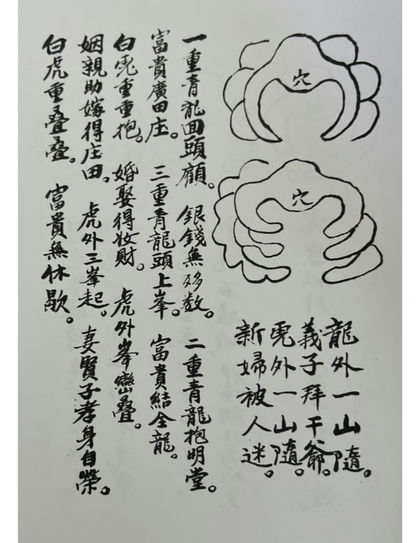 穴
穴
龍外一山隨。
義子拜干爺。
兎外一山隨。
新婦被人迷。
一重青龍囬頭顧。 銀錢無够数。 二重青龍抱明堂。
富貴廣田庄。 三重青龍頭上峯。 富貴結全龍。
白兎重重抱。 婚娶得妆財。 虎外峯巒叠。
姻親助嫁得庄田。 虎外三峯起。 妻賢子孝身自榮。
白虎重叠叠。 富貴無休歇。